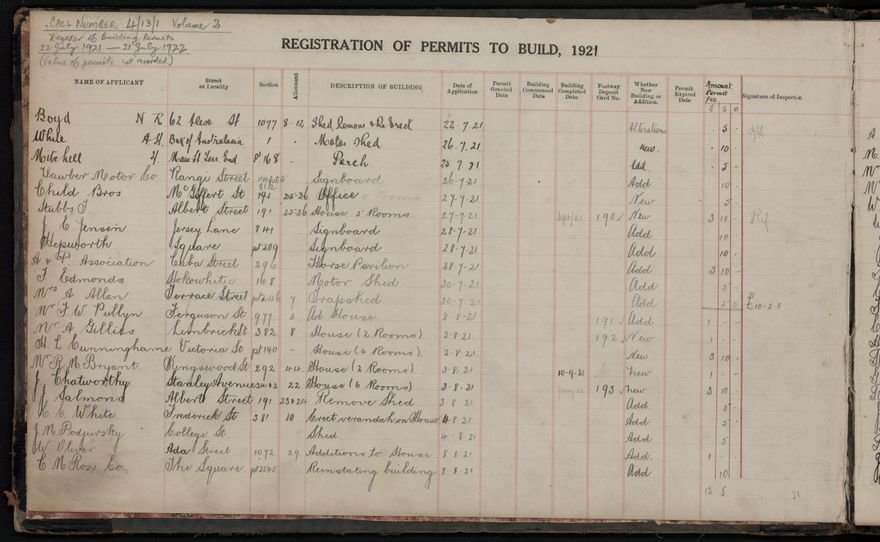 CALL NUMBER 4/13/1 Volume 2
Register of Building Permits
22 July 1921 — 21 July 1922
(Value of permits not recorded)
REGISTRATION OF PERMITS TO BUILD, 1921
NAME OF APPLICANT Street or Locality Section Allotment DESCRIPTION OF BUILDING Date of Application Permit Granted Date Building Commenced Date Building Completed Date Footway Deposit Card No. Whether New Building or Addition. Permit Expired Date Amount Permit fee Signature of Inspector.
£ s D
Boyd N R 62 St 1077 8-12 Shed Remove & Re Erect 22.7.21 Alteration 5
While A H. Bk of Australasia 1 - Motor Shed 26.7.21 new 10
Mitchell Main St Terr. End pt 168 - Porch 26.7.21 Add 5
Hawber Motor Co Rangi Street Signboard 26.7.21 Add 10
Child Bros McGiffert St 191 25-26 Office 27-7-21 New 5
Stubbs J. Albert Street 191 25-26 House 5 Rooms 27-7-21 190 New 3 10 Ref
J. C. Jensen Jersey Lane 841 Signboard 28-7-21 Add 10
Hepworth Square pt 209 Signboard 28.7.21 Add 10
A & P Association Cuba Street 296 Horse Pavilion 28.7.21 Add 3 10
F Edmonds 168 Motor Shed 30-7-21 Add 5
Mrs A Allan Terrace Street 7 Trapshed 30.7.21 Add 5 0 £10-5-0
Mr F W Pullyn Ferguson St 977 5 Ad House 2-8-21 191 Add 1 -
Mr A Gillies Limbrick St 382 8 House (2 Rooms) 2.8.21 192 New 1 -
H L Cunninghame Victoria St pt 140 - House (6 Rooms) 2.8.21 New 3 10
Mr R M Bryant Kingswood St 292 44 House (2 Rooms) 3-8-21 10-9-21 New 1 -
J Chatworthy Stanley Avenue 22 House (6 Rooms) 3-8-21 193 New 3 10
Salmond Albert Street 191 23&24 Remove Shed 3 8 21 Add 5
White Frederick St 381 10 Erect verandah on House 4 8 21 Add 5
J M Podjursky College St Shed 4-8-21 Add 5
W Olver Ada Street 1092 29 Additions to House 8 8 21 Add. 1 -
C M Ross Co. The Square Reinstating building 8 8 21 Add 10
12 5 21